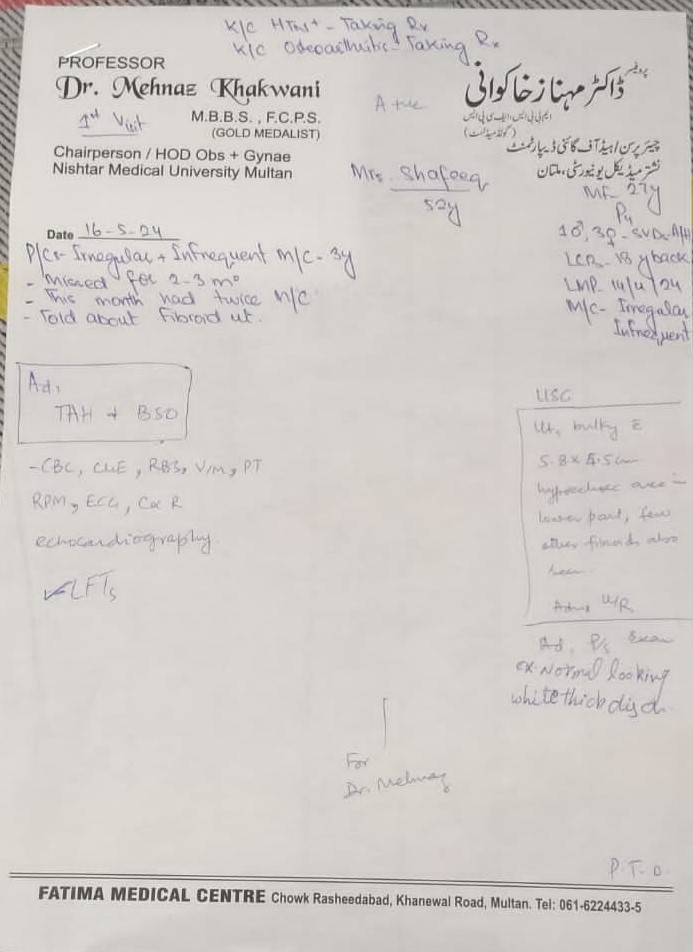 K/C HTN+ - Taking Rx
K/C Osteoarthritis - Taking Rx
PROFESSOR
Dr. Mehnaz Khakwani
1st Visit
M.B.B.S., F.C.P.S.
(GOLD MEDALIST)
Chairperson / HOD Obs + Gynae
Nishtar Medical University Multan
A +ve
پروفیسر
ڈاکٹر مہناز خاکوانی
ایم بی بی ایس، ایف سی پی ایس
(گولڈ میڈلسٹ)
چیئر پرسن / ہیڈ آف گائنی ڈیپارٹمنٹ
نشتر میڈیکل یونیورسٹی، ملتان
Mrs. Shafeeq
52y
MF- 27y
P4
1♂, 3♀ - SVDs - A/H
LCB- 18 y back
LMP- 14/4/24
M/C- Irregular
Infrequent
Date 16-5-24
P/C:- Irregular + Infrequent M/C - 3y
- Missed for 2-3 mo
- This month had twice M/C
- Told about Fibroid ut.
Ad,
TAH + BSO
- CBC, CUE, RBS, V/M, PT
RPM, ECG, CxR
echocardiography
✓LFTs
USG
Ut, bulky c̄
5.8 x 4.5cm
hypoechoic area in
lower part, few
other fibroids also
seen
Adv, U/R
Ad, P/s Exam
cx. Normal looking
white thick disch.
For
Dr. Mehnaz
P.T.O.
FATIMA MEDICAL CENTRE Chowk Rasheedabad, Khanewal Road, Multan. Tel: 061-6224433-5